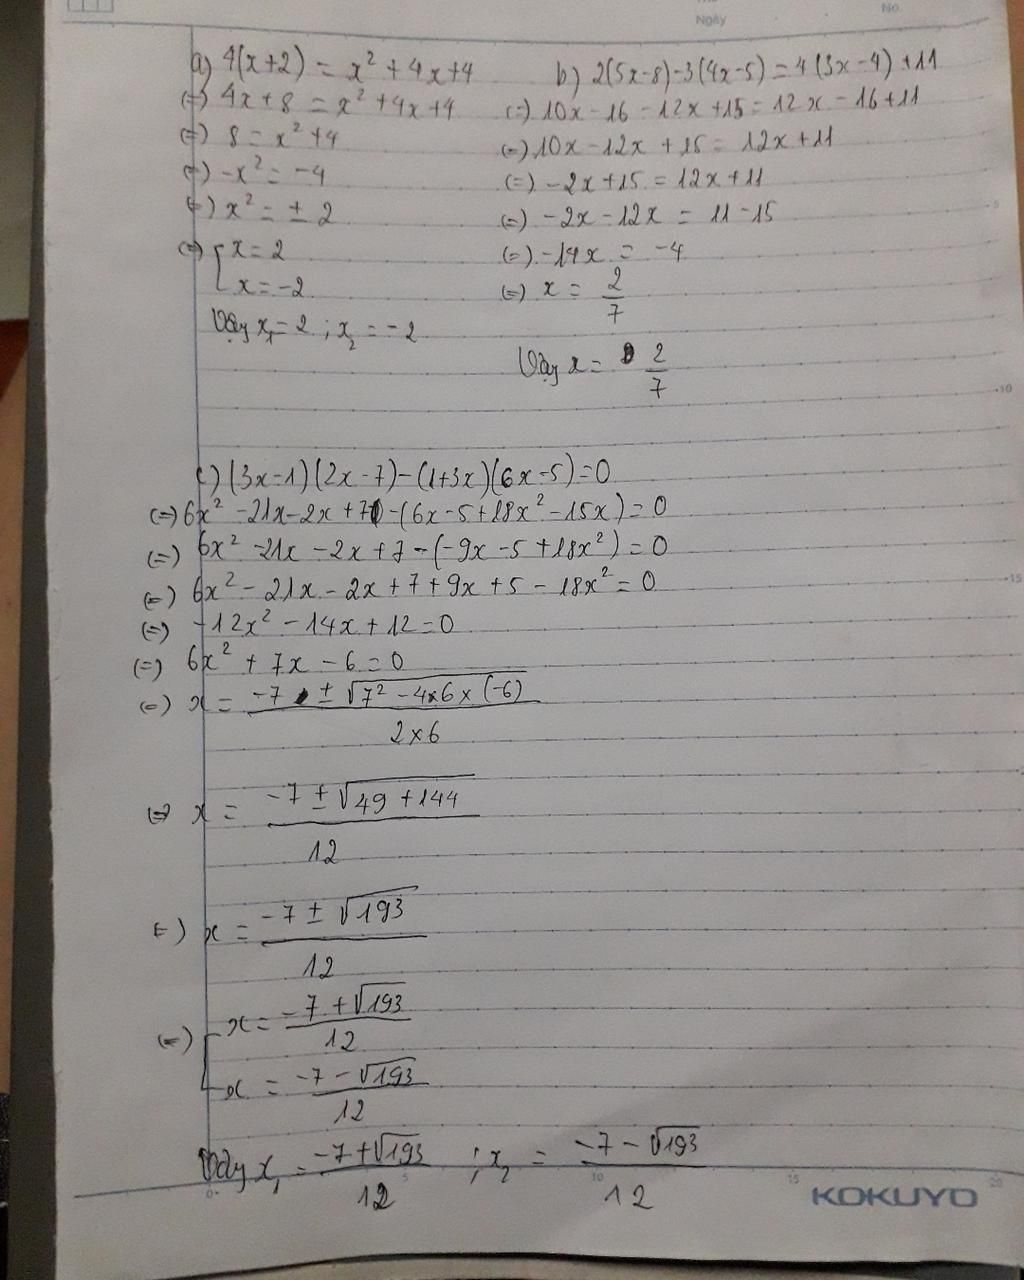 No.
Ngày
a) 4(x+2) = x² + 4x+4
(=) 4x + 8 = x² + 4x + 4
(=) 8 = x² + 4
(=) -x² = -4
(=) x² = ± 2
(=) [ x = 2
x = -2
Vậy x₁ = 2 ; x₂ = -2
b) 2(5x-8)-3(4x-5) = 4(3x-4)+11
(=) 10x - 16 - 12x + 15 = 12x - 16 + 11
(=) 10x - 12x + 15 = 12x + 11
(=) -2x + 15 = 12x + 11
(=) -2x - 12x = 11 - 15
(=) -14x = -4
(=) x = 2/7
Vậy x = 2/7
c) (3x-1)(2x-7)-(1+3x)(6x-5)=0
(=) 6x² - 21x - 2x + 7 - (6x - 5 + 18x² - 15x) = 0
(=) 6x² - 21x - 2x + 7 - (-9x - 5 + 18x²) = 0
(=) 6x² - 21x - 2x + 7 + 9x + 5 - 18x² = 0
(=) -12x² - 14x + 12 = 0
(=) 6x² + 7x - 6 = 0
(=) x = (-7 ± √(7² - 4x6x(-6)))/(2x6)
(=) x = (-7 ± √(49 + 144))/12
(=) x = (-7 ± √193)/12
(=) [ x = (-7 + √193)/12
x = (-7 - √193)/12
Vậy x₁ = (-7 + √193)/12 ; x₂ = (-7 - √193)/12
5
10
15
0
5
10
15
20
KOKUYO